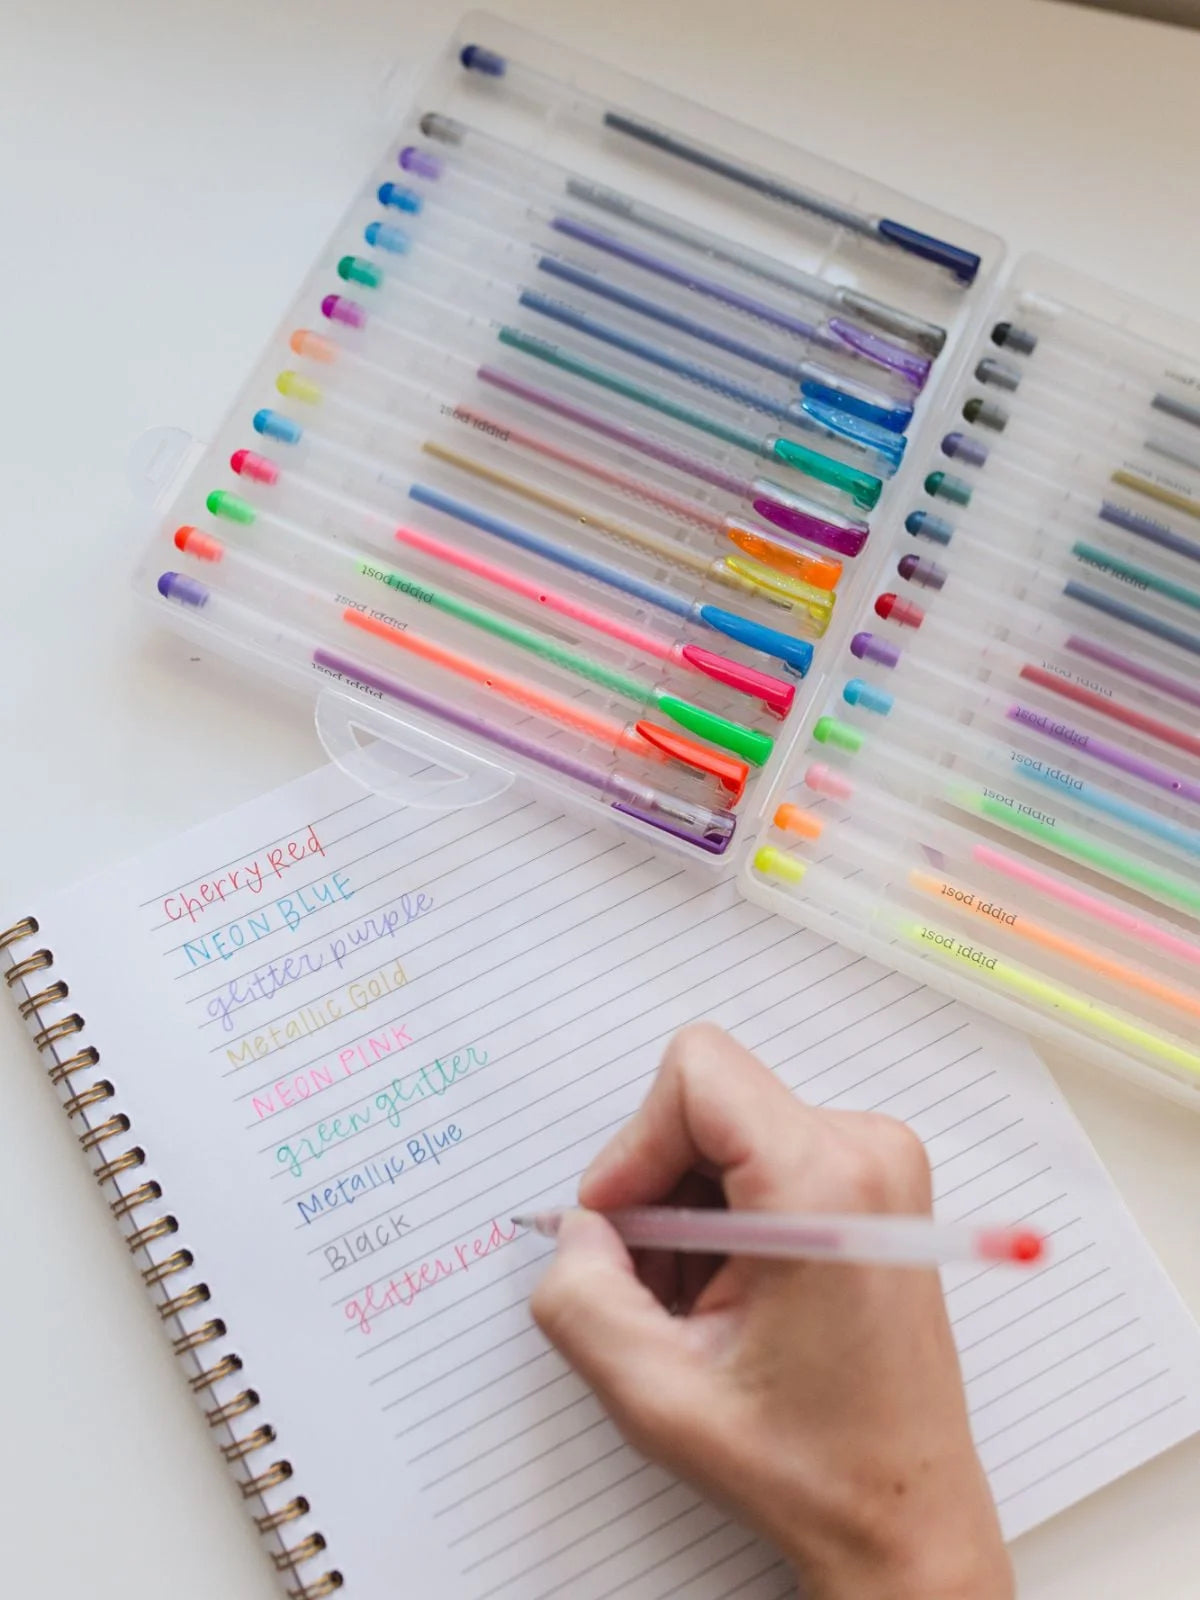 cherry Red
NEON BLUE
glitter purple
Metallic Gold
NEON PINK
green glitter
Metallic Blue
Black
glitter red
pippi post
pippi post
pippi post
pippi post
pippi post
pippi post
pippi post
pippi post
pippi post
pippi post